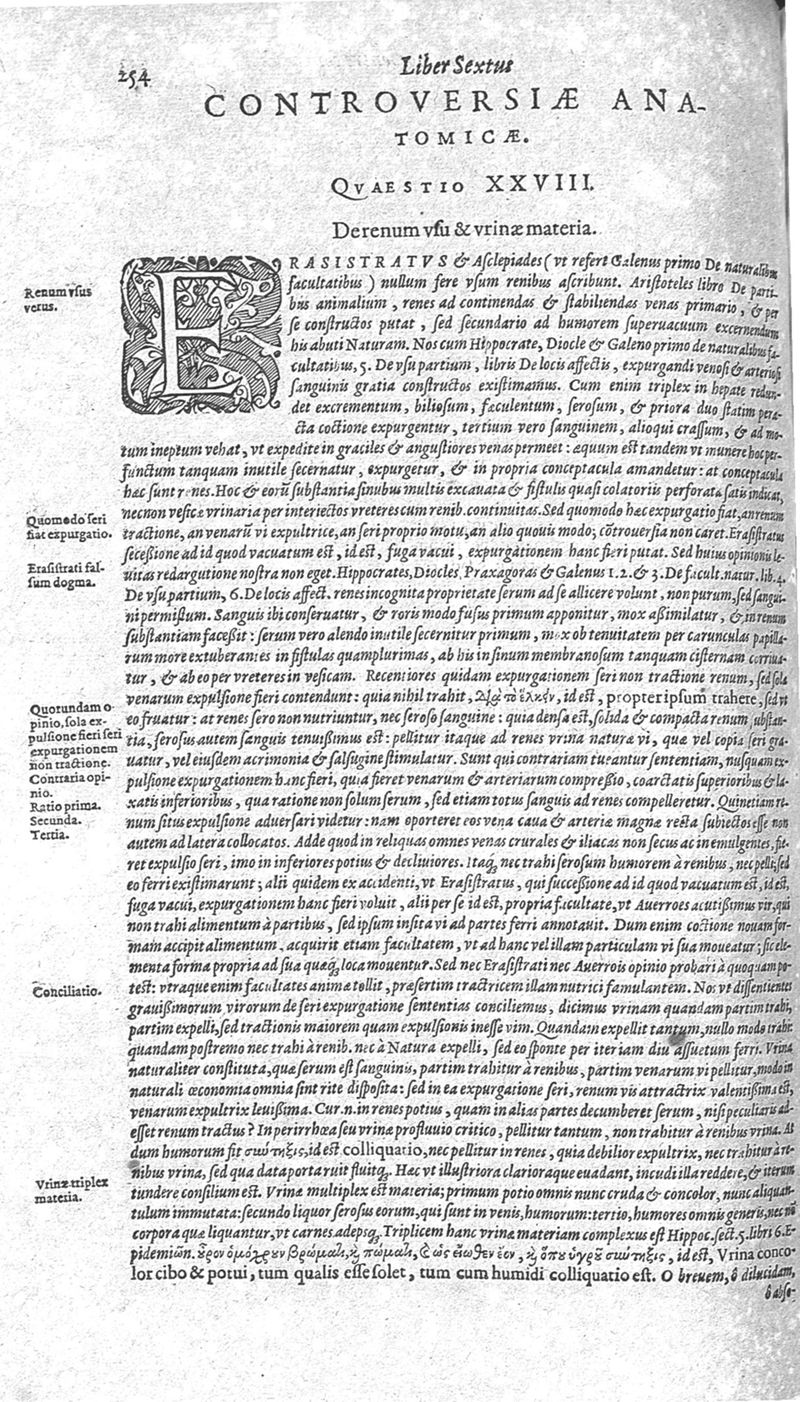 254
Liber Sextus
CONTROVERSIÆ ANA-
TOMICÆ.
QVAESTIO XXVIII.
De renum vsu & vrinæ materia.
Renum vsus
verus.
ERASISTRATVS & Asclepiades (vt refert Galenus primo De naturalibus
facultatibus) nullum fere vsum renibus ascribunt. Aristoteles libro De parti-
bus animalium, renes ad continendas & stabiliendas venas primario, & per
se constructos putat, sed secundario ad humorem superuacuum excernendum
his abuti Naturam. Nos cum Hippocrate, Diocle & Galeno primo de naturalibus fa-
cultatibus, 5. De vsu partium, libris De locis affectis, expurgandi venosi & arteriosi
sanguinis gratia constructos existimamus. Cum enim triplex in hepate redun-
det excrementum, biliosum, fæculentum, serosum, & priora duo statim pera-
cta coctione expurgentur, tertium vero sanguinem, alioqui crassum, & ad mo-
tum ineptum vehat, vt expedite in graciles & angustiores venas permeet: æquum est tandem vt munere hoc per-
functum tanquam inutile secernatur, expurgetur, & in propria conceptacula amandetur: at conceptacula
hæc sunt renes. Hoc & eorū substantia sinubus multis excauata & fistulis quasi colatoriis perforata satis indicat,
Quomodo seri
fiat expurgatio.
nec non vesicæ vrinaria per interiectos vreteres cum renib. continuitas. Sed quomodo hæc expurgatio fiat, an renum
tractione, an venarū vi expultrice, an seri proprio motu, an alio quouis modo; cōtrouersia non caret. Erasistratus
Erasistrati fal-
sum dogma.
secessione ad id quod vacuatum est, id est, fuga vacui, expurgationem hanc fieri putat. Sed huius opinionis le-
uitas redargutione nostra non eget. Hippocrates, Diocles, Praxagoras & Galenus 1. 2. & 3. De facult. natur. lib. 4.
De vsu partium, 6. De locis affect. renes incognita proprietate serum ad se allicere volunt, non purum, sed sangui-
ni permistum. Sanguis ibi conseruatur, & roris modo fusus primum apponitur, mox assimilatur, & in renum
substantiam facessit: serum vero alendo inutile secernitur primum, mox ob tenuitatem per carunculas papilla-
rum more extuberantes in fistulas quamplurimas, ab his in sinum membranosum tanquam cisternam corriua-
tur, & ab eo per vreteres in vesicam. Recentiores quidam expurgationem seri non tractione renum, sed sola
Quorundam o-
pinio, sola ex-
pulsione fieri seri
expurgationem
non tractione.
venarum expulsione fieri contendunt: quia nihil trahit, διὰ τὸ ἕλκειν, id est, propter ipsum trahere, sed vt
eo fruatur: at renes sero non nutriuntur, nec seroso sanguine: quia densa est, solida & compacta renum substan-
tia, serosus autem sanguis tenuissimus est: pellitur itaque ad renes vrina naturæ vi, quæ vel copia seri gra-
uatur, vel eiusdem acrimonia & salsugine stimulatur. Sunt qui contrariam tueantur sententiam, nusquam ex-
Contraria opi-
nio.
Ratio prima.
Secunda.
Tertia.
pulsione expurgationem hanc fieri, quia fieret venarum & arteriarum compressio, coarctatis superioribus & la-
xatis inferioribus, qua ratione non solum serum, sed etiam totus sanguis ad renes compelleretur. Quinetiam re-
num situs expulsione aduersari videtur: nam oporteret eos venæ cauæ & arteriæ magnæ recta subiectos esse non
autem ad latera collocatos. Adde quod in reliquas omnes venas crurales & iliacas non secus ac in emulgentes, fie-
ret expulsio seri, imo in inferiores potius & decliuiores. Itaq; nec trahi serosum humorem à renibus, nec pelli, sed
eo ferri existimarunt; alii quidem ex accidenti, vt Erasistratus, qui successione ad id quod vacuatum est, id est,
fuga vacui, expurgationem hanc fieri voluit, alii per se id est, propria facultate, vt Auerroes acutissimus vir, qui
non trahi alimentum à partibus, sed ipsum insita vi ad partes ferri annotauit. Dum enim coctione nouam for-
mam accipit alimentum, acquirit etiam facultatem, vt ad hanc vel illam particulam vi sua moueatur; sic ele-
menta forma propria ad sua quæq; loca mouentur. Sed nec Erasistrati nec Auerrois opinio probari à quoquam po-
Conciliatio.
test: vtraque enim facultates animæ tollit, præsertim tractricem illam nutrici famulantem. Nos vt dissentientes
grauissimorum virorum de seri expurgatione sententias conciliemus, dicimus vrinam quandam partim trahi,
partim expelli, sed tractionis maiorem quam expulsionis inesse vim. Quandam expelli tantum, nullo modo trahi:
quandam postremo nec trahi à renib. nec à Natura expelli, sed eo sponte per iter iam diu assuetum ferri. Vrina
naturaliter constituta, quæ serum est sanguinis, partim trahitur à renibus, partim venarum vi pellitur, modo in
naturali œconomia omnia sint rite disposita: sed in ea expurgatione seri, renum vis attractrix valentissima est,
venarum expultrix leuissima. Cur. n. in renes potius, quam in alias partes decumberet serum, nisi peculiaris ad-
esset renum tractus? In perirrhœa seu vrinæ profluuio critico, pellitur tantum, non trahitur à renibus vrina. At
dum humorum fit σύντηξις, id est colliquatio, nec pellitur in renes, quia debilior expultrix, nec trahitur à re-
nibus vrina, sed qua data porta ruit fluitq;. Hæc vt illustriora clarioraque euadant, incudi illa reddere, & iterum
Vrinæ triplex
materia.
tundere consilium est. Vrinæ multiplex est materia; primum potio omnis nunc cruda & concolor, nunc aliquan-
tulum immutata: secundo liquor serosus eorum, qui sunt in venis, humorum: tertio, humores omnis generis, nec nō
corpora quæ liquantur, vt carnes, adepsq;. Triplicem hanc vrinæ materiam complexus est Hippoc. sect. 5. libri 6. E-
pidemiῶν. οὖρον ὁμόχρουν βρώμαλι, κὶ πώμαλι, & ὡς εἴωθεν ἐὸν, κὶ ὅπου ὑγροῦ σύντηξις, id est, Vrina conco-
lor cibo & potui, tum qualis esse solet, tum cum humidi colliquatio est. O breuem, ô dilucidam,
ô abso-